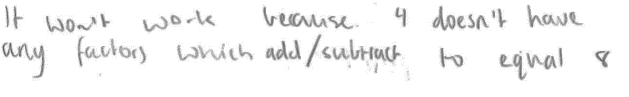 It won't work because 4 doesn't have
any factors which add/subtract to equal 8